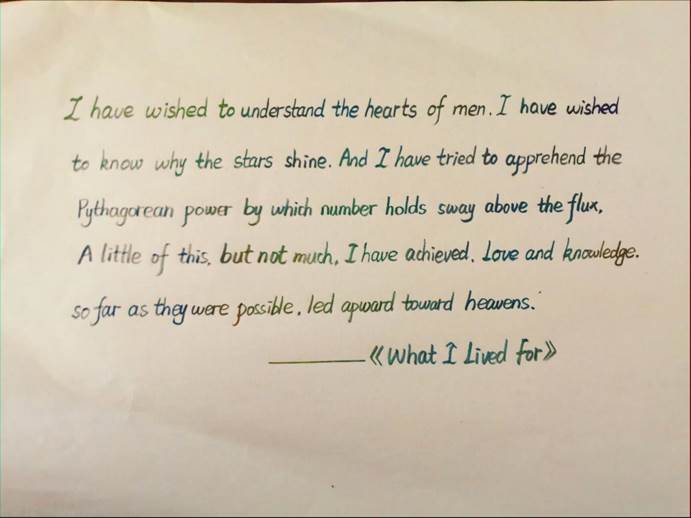 I have wished to understand the hearts of men. I have wished
to know why the stars shine. And I have tried to apprehend the
Pythagorean power by which number holds sway above the flux,
A little of this, but not much, I have achieved. Love and knowledge.
so far as they were possible, led apward toward heavens.
———《What I Lived for》